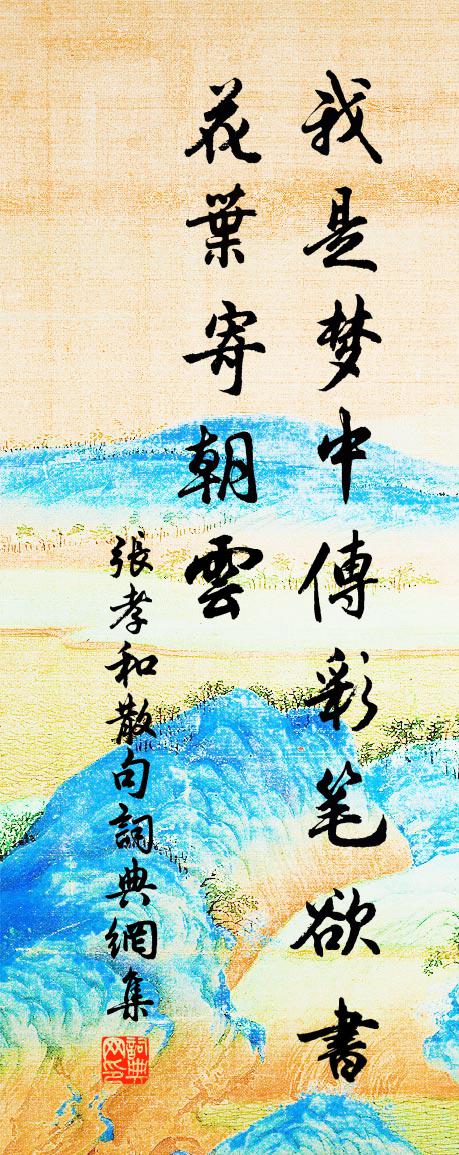 我是梦中傳彩笔欲書
花葉寄朝雲
張孝和散句詞典網集
詞典网印